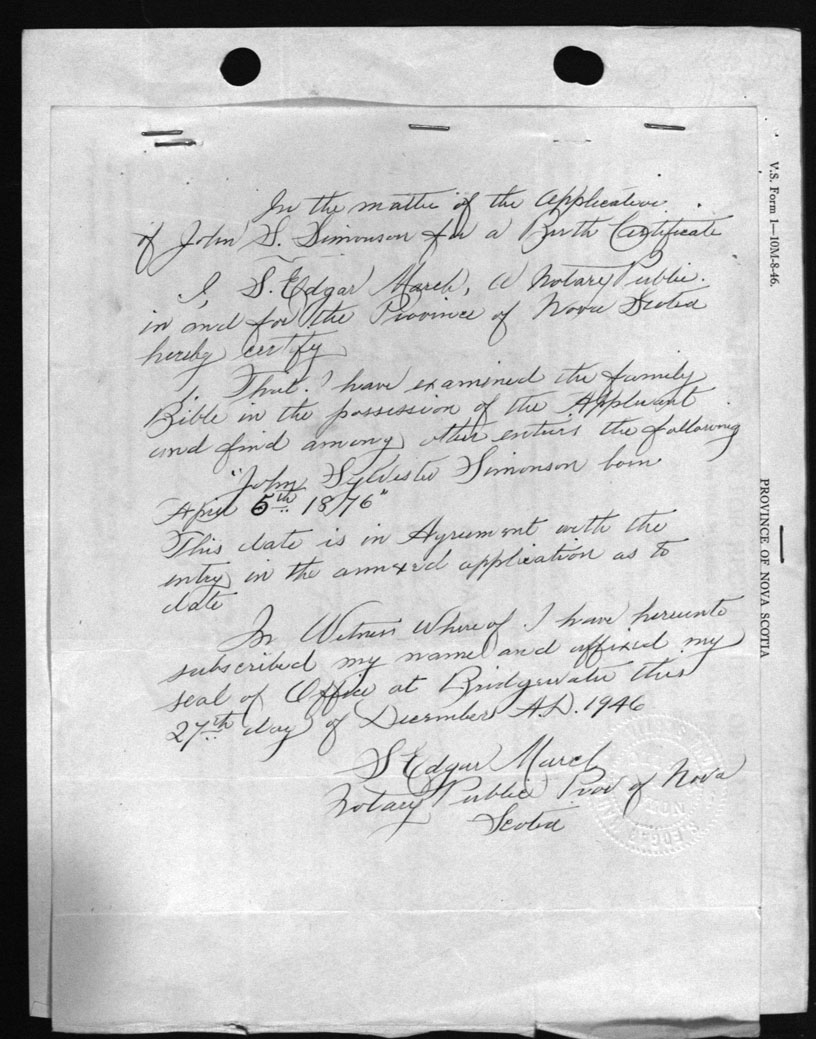 In the matter of the Application
of John S. Simonson for a Birth Certificate
I, S. Edgar March, a Notary Public.
in and for the Province of Nova Scotia
hereby certify
1. That I have examined the family
Bible in the possession of the Applicant
and find among other entries the following
"John Sylvester Simonson born
April 5th 1876"
This date is in Agreement with the
entry in the annexed application as to
date
In Witness Whereof I have hereunto
subscribed my name and affixed my
seal of Office at Bridgewater this
27th day of December A.D. 1946
S Edgar March
Notary Public Prov of Nova
Scotia
V.S. Form 1—10M-8-46.
PROVINCE OF NOVA SCOTIA